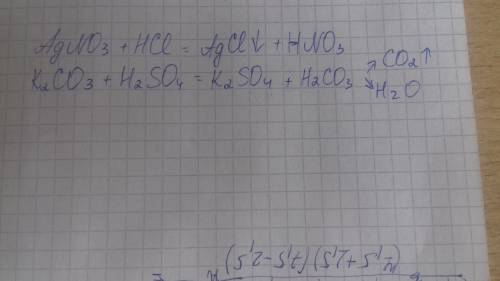 AgNO₃ + HCl = AgCl↓ + HNO₃
K₂CO₃ + H₂SO₄ = K₂SO₄ + H₂CO₃ ↗ CO₂↑
↘ H₂O